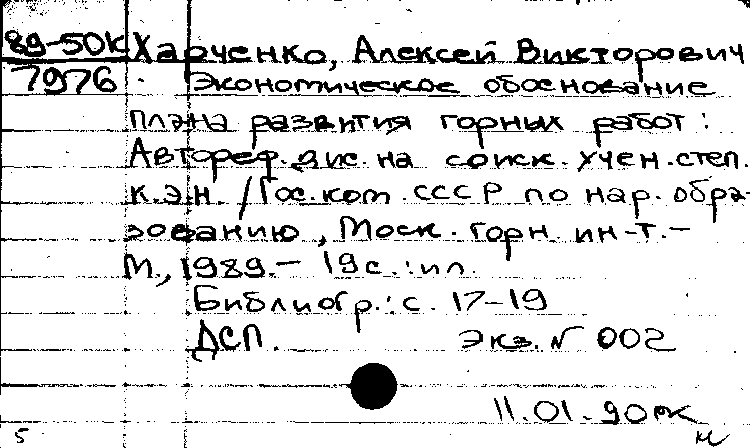 89-50к Харченко, Алексей Викторович
7976. Экономическое обоснование
плана развития горных работ:
Автореф. дис. на соиск. учен. степ.
к.э.н. /Гос. ком. СССР по нар. обра-
зованию, Моск. горн. ин-т. –
М., 1989. – 19 с. : ил.
Библиогр.: с. 17–19
ДСП. Экз. N 002
11.01.90
5